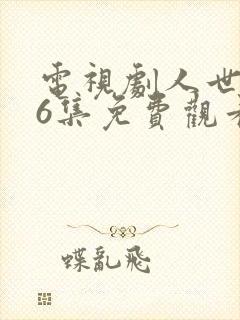 電視劇人世
6集免費觀看
蝶亂飛